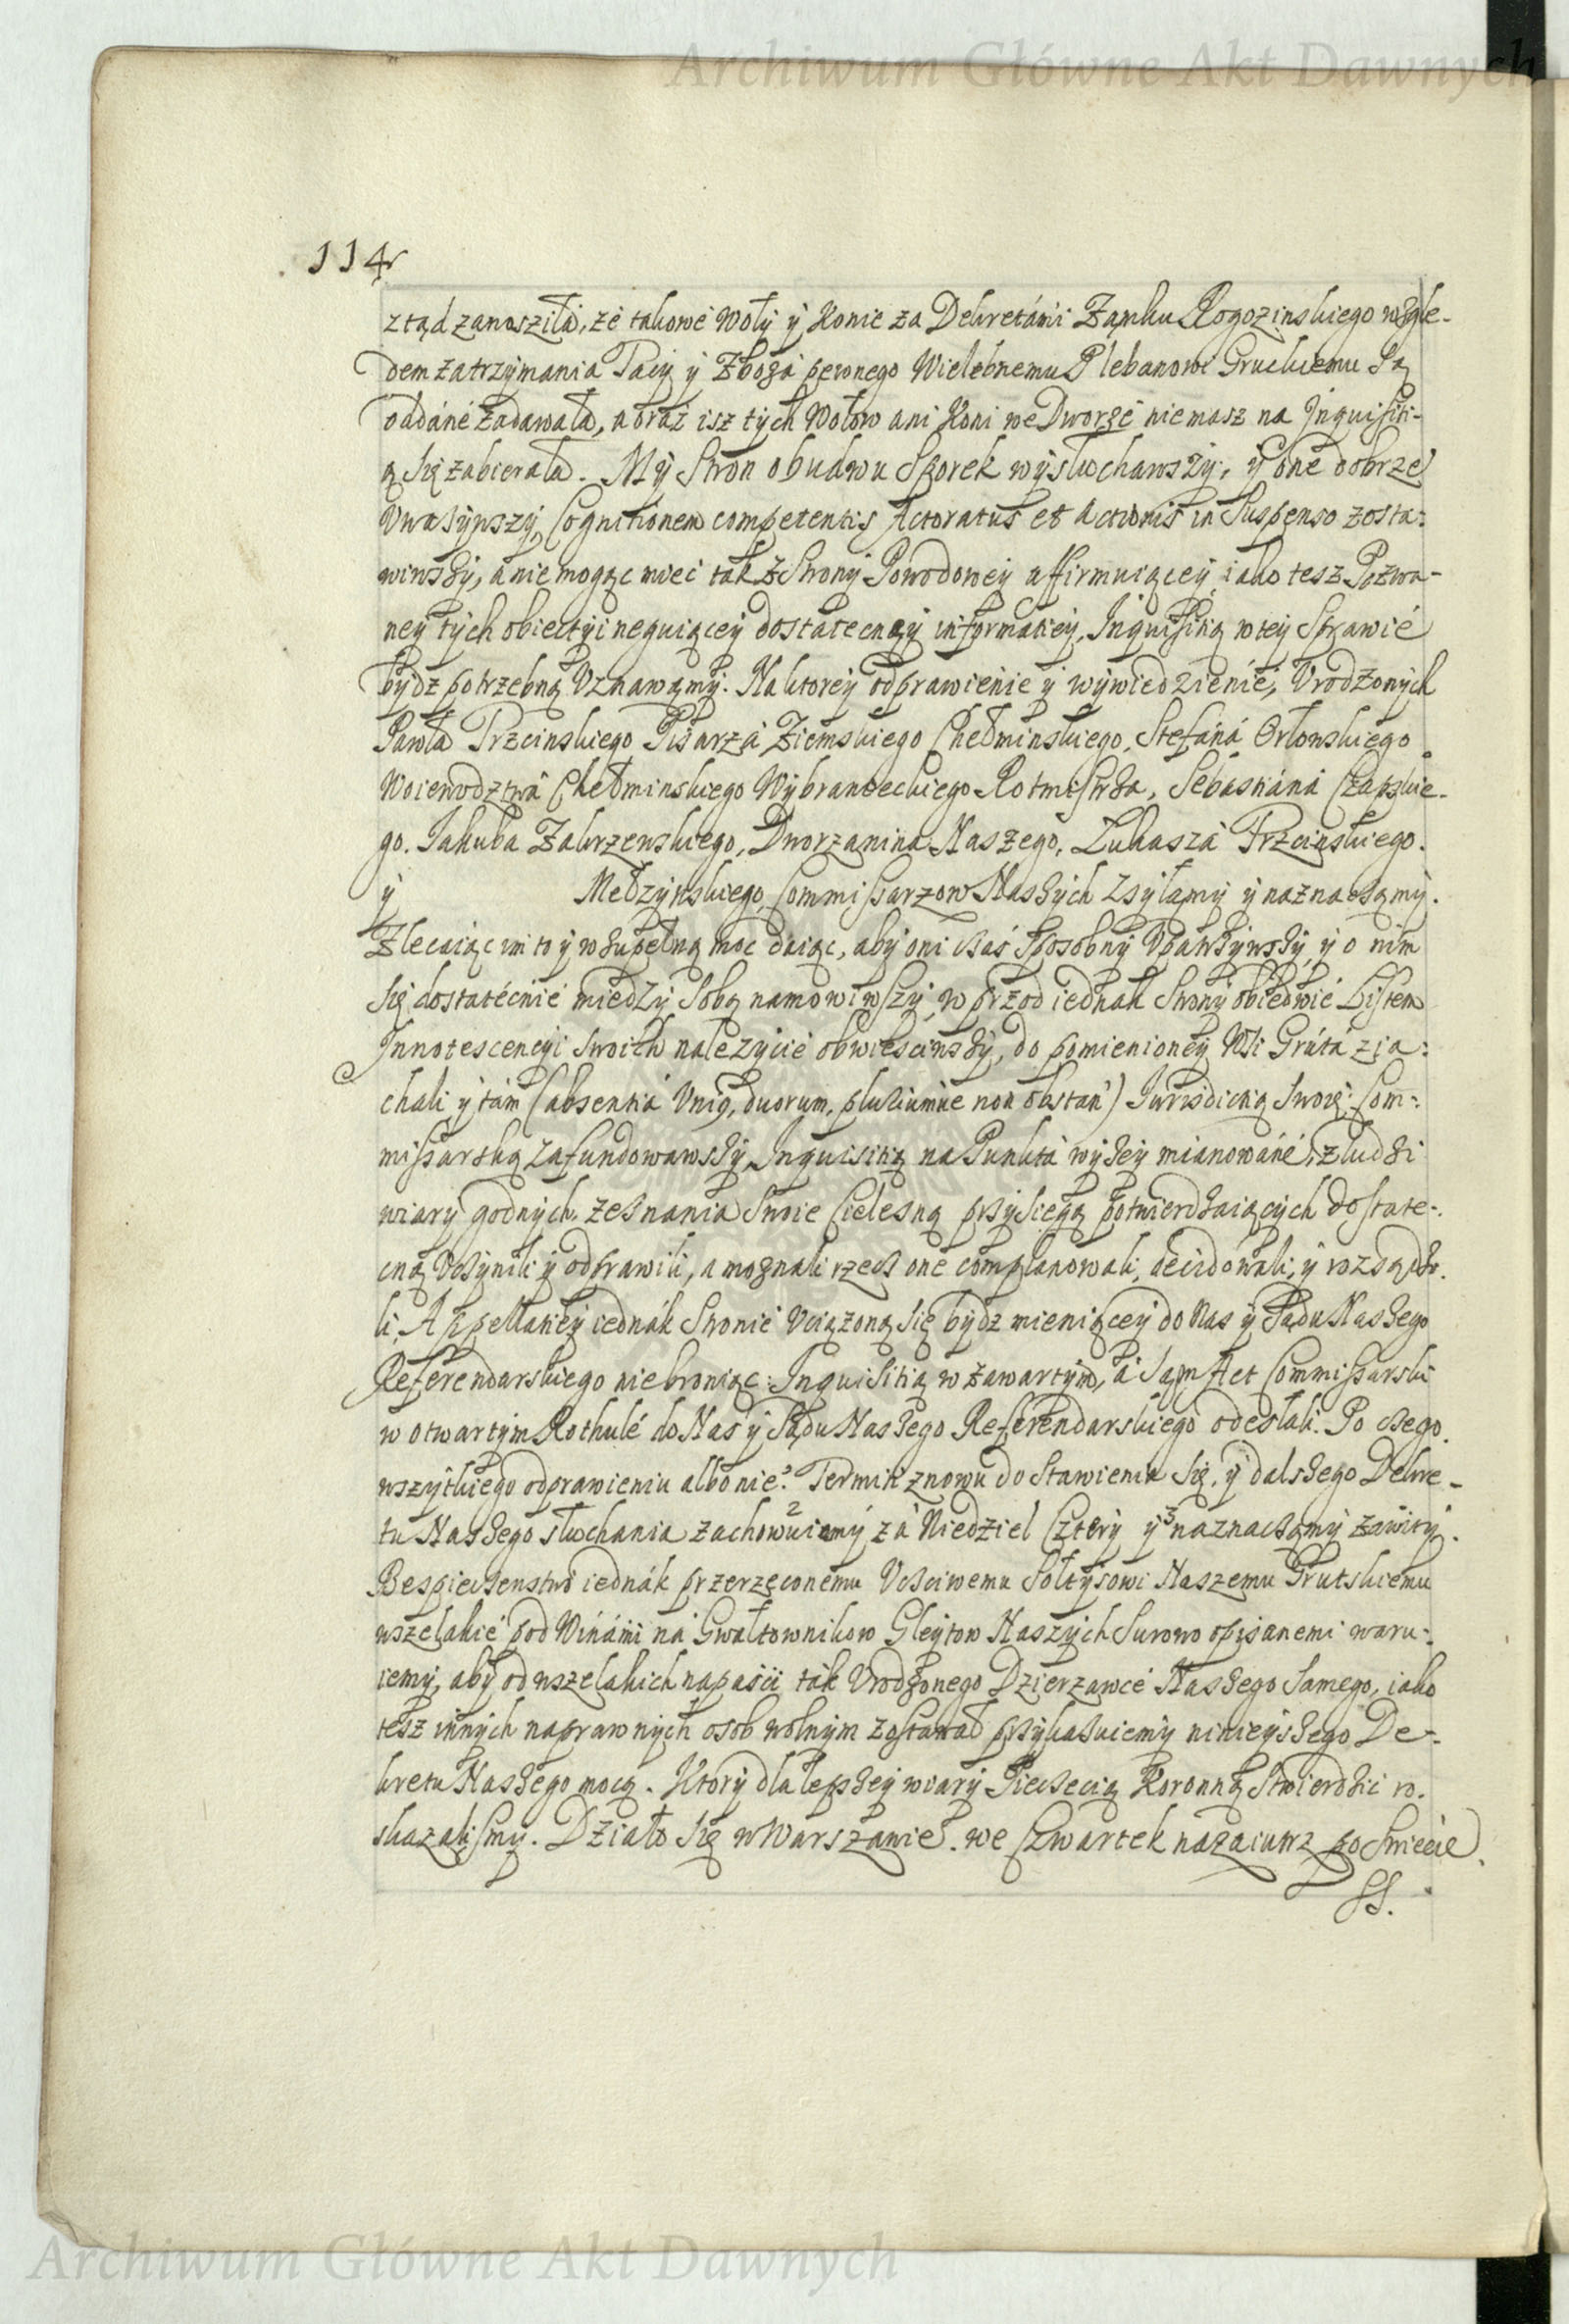 Archiwum Główne Akt Dawnych
114
ztąd zanosziła, że takowe Woły y Konie za Dekretámi Zamku Rogozinskiego wzglę-
dem zatrzymania Tacy y Zboża pewnego Wielebnemu Plebanowi Gruckiemu są
oddáné zadawała, a oraz isz tych Wołow ani Koni we Dworzé nie masz na Inquisiti-
ą się zabierała. My Stron obudwu Sporek wysłuchawszy, y one dobrze
Uważywszy, Cognitionem competentis Actoratus et Actionis in Suspenso zosta:
wiwszy, a nie mogąc mieć tak z Strony Powodowey affirmuiącey iako tesz Pozwa-
ney tych obiectyi neguiącey dostatecney informatiey, Inquisitią w tey Sprawié
bydz potrzebną Uznawamy. Na ktorey odprawienie y wywiedzienié, Urodzonych
Pawła Trzcinskiego Pisarzá Ziemskiego Chełminskiego, Stefáná Orłowskiego
Woiewodztwá Chełminskiego Wybranieckiego Rotmistrza, Sebastiáná Czapskie-
go. Jakuba Zakrzewskiego, Dworzanina Naszego, Lukaszá Trzcinskiego.
y Mełzynskiego, Commissarzow Naszych zsyłamy y naznaczamy.
Zlecaiąc im to y w zupełną moc daiąc, aby oni czas sposobny Upatrzywszy, y o nim
się dostatécnié miedzy sobą namowiwszy, w przod iednak Strony obiedwié Listem
Innotescencyi swoich należycié obwiesciwszy, do pomienioney Wsi Grútá zia:
chali y tám (absentiá Unig, duorum, pluriumue non obstan) Jurisdictią Swoię Com:
missarską zafundowawszy, Inquisitią na Punktá wyżey mianowáné, z ludzi
wiary godnych, zeznania Swoie Cielesną przysięgą potwierdzaiących dostate-
cną Uczynili y odprawili, a możnali rzecz one complanowali, decidowali, y rozsądzi-
li. Appellatiey iednák Stronié Uciążoną się bydz mieniącey do Nas y Sądu Naszego
Referendarskiego nie broniąc: Inquisitią w zawartym, á sam Act Commissarski
w otwartym Rothulé do Nas y Sądu Naszego Referendarskiego odesłali. Po czego
wszytkiego odprawieniu albo nie? Termin znowu do Stawienia się, y dalszego Dekre-
tu Naszego słuchania zachowuiemy zá Niedziel Cztery y naznaczamy zawity.
Bespieczenstwo iednák przerzeconemu Uczciwemu Sołtysowi Naszemu Grutskiemu
wszelakié pod Winámi ná Gwałtownikow Gleytow Naszych Surowo opisanemi waru:
iemy, aby od wszelakich napaści ták Urodzonego Dzierzawcé Naszego Samego, iako
tesz innych naprawnych osob wolnym zostawał przykazuiemy ninieyszego De-
kretu Naszego mocą. Ktory dla lepszey wiary Pieczecią Koronną Stwierdzić ro-
skazalismy. Działo się w Warszawie. we Czwartek nazaiutrz po Swiecie
SS.
Archiwum Główne Akt Dawnych